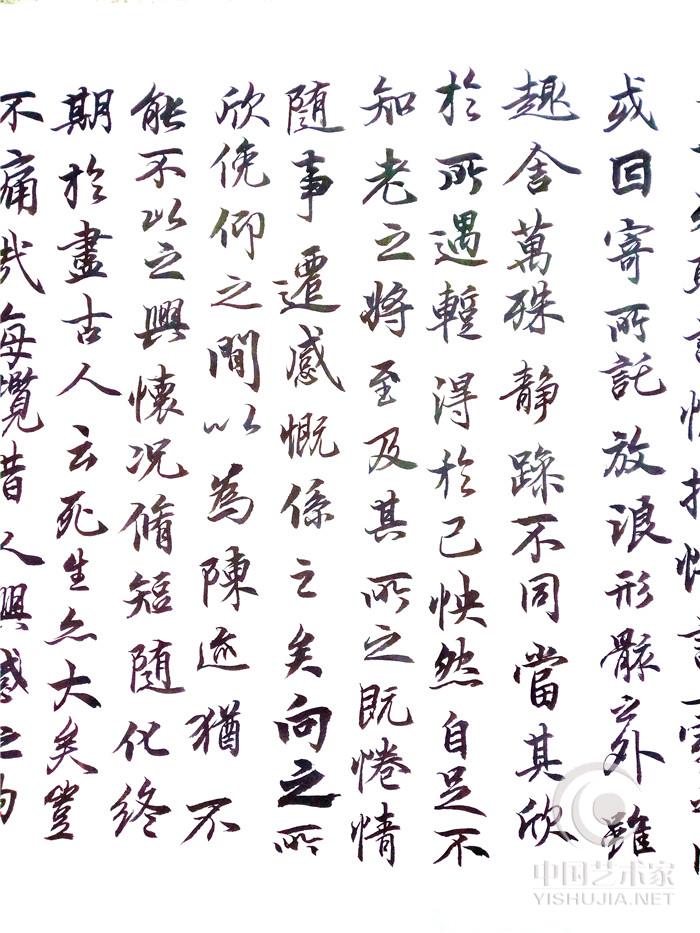 或因寄所託放浪形骸之外雖
趣舍萬殊静躁不同當其欣
於所遇蹔得於己怏然自足不
知老之将至及其所之既惓情
随事遷感慨係之矣向之所
欣俛仰之間以為陳迹猶不
能不以之興懷况脩短随化終
期於盡古人云死生亦大矣豈
不痛哉每攬昔人興感之由
中国艺术家
YISHUJIA.NET